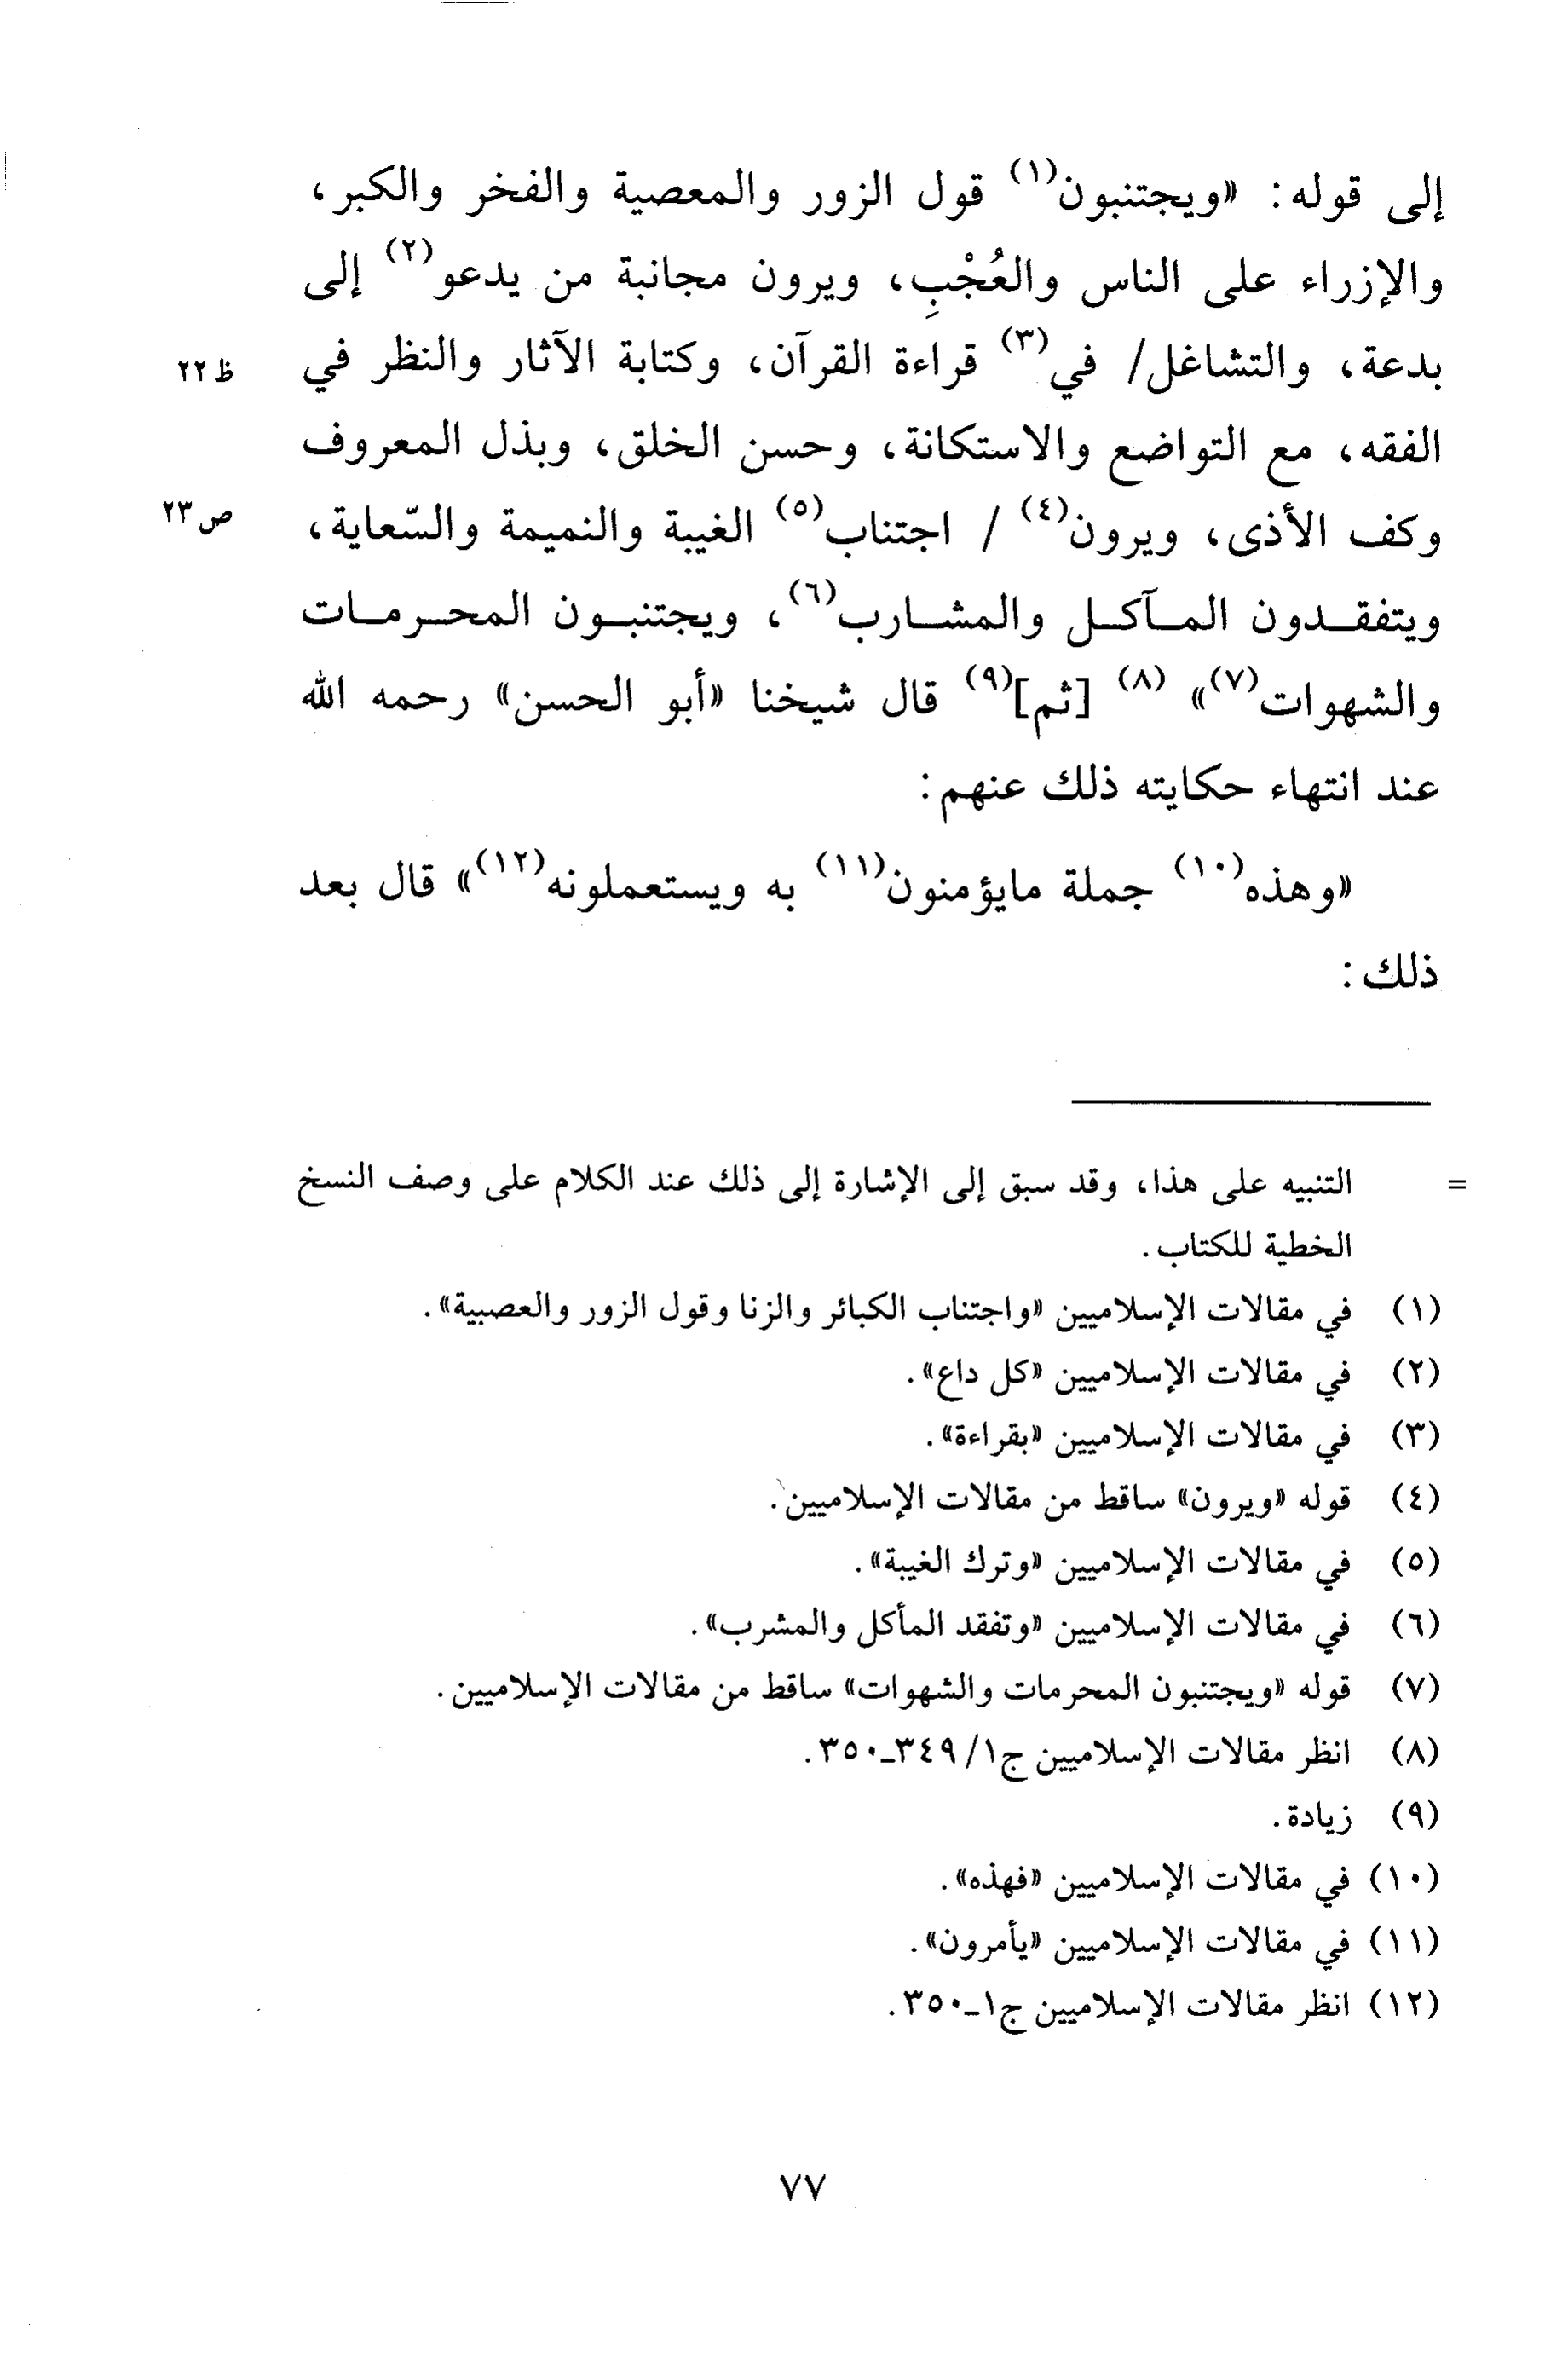 إلى قوله: «ويجتنبون(١) قول الزور والمعصية والفخر والكبر،
والإزراء على الناس والعُجْبِ، ويرون مجانبة من يدعو(٢) إلى
بدعة، والتشاغل/ في(٣) قراءة القرآن، وكتابة الآثار والنظر في ظ٢٢
الفقه، مع التواضع والاستكانة، وحسن الخلق، وبذل المعروف
وكف الأذى، ويرون(٤) / اجتناب(٥) الغيبة والنميمة والسّعاية، ص٢٣
ويتفقـدون المـآكـل والمشـارب(٦)، ويجتنبـون المحـرمـات
والشهوات(٧)» (٨) [ثم](٩) قال شيخنا «أبو الحسن» رحمه الله
عند انتهاء حكايته ذلك عنهم:
«وهذه(١٠) جملة مايؤمنون(١١) به ويستعملونه(١٢)» قال بعد
ذلك:
= التنبيه على هذا، وقد سبق إلى الإشارة إلى ذلك عند الكلام على وصف النسخ
الخطية للكتاب.
(١) في مقالات الإسلاميين «واجتناب الكبائر والزنا وقول الزور والعصبية».
(٢) في مقالات الإسلاميين «كل داع».
(٣) في مقالات الإسلاميين «بقراءة».
(٤) قوله «ويرون» ساقط من مقالات الإسلاميين.
(٥) في مقالات الإسلاميين «وترك الغيبة».
(٦) في مقالات الإسلاميين «وتفقد المأكل والمشرب».
(٧) قوله «ويجتنبون المحرمات والشهوات» ساقط من مقالات الإسلاميين.
(٨) انظر مقالات الإسلاميين ج١/ ٣٤٩-٣٥٠.
(٩) زيادة.
(١٠) في مقالات الإسلاميين «فهذه».
(١١) في مقالات الإسلاميين «يأمرون».
(١٢) انظر مقالات الإسلاميين ج١-٣٥٠.
٧٧